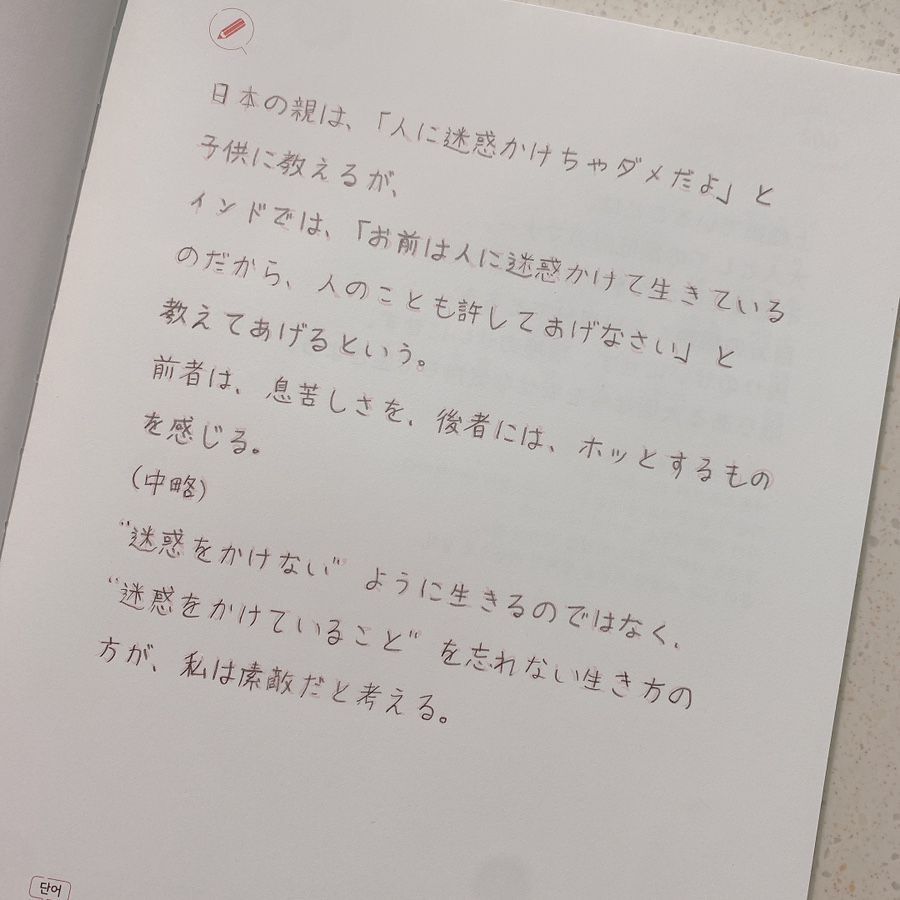 日本の親は、「人に迷惑かけちゃダメだよ」と
子供に教えるが、
インドでは、「お前は人に迷惑かけて生きている
のだから、人のことも許してあげなさい」と
教えてあげるという。
前者は、息苦しさを、後者には、ホッとするもの
を感じる。
(中略)
"迷惑をかけない" ように生きるのではなく、
"迷惑をかけていること" を忘れない生き方の
方が、私は素敵だと考える。
단어